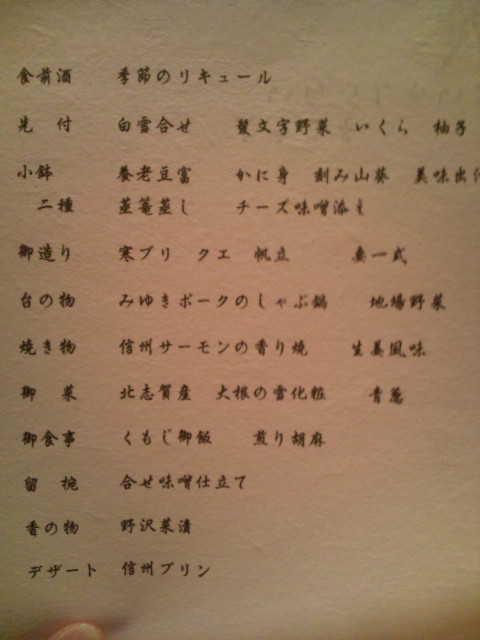 食前酒 季節のリキュール
先付 白雪合せ 髪文字野菜 いくら 柚子
小鉢 養老豆富 かに身 刻み山葵 美味出
二種 蒸篭蒸し チーズ味噌添え
御造り 寒ブリ クエ 帆立 妻一式
台の物 みゆきポークのしゃぶ鍋 地場野菜
焼き物 信州サーモンの香り焼 生姜風味
御菜 北志賀産 大根の雪化粧 青葱
御食事 くもじ御飯 煎り胡麻
留椀 合せ味噌仕立て
香の物 野沢菜漬
デザート 信州プリン